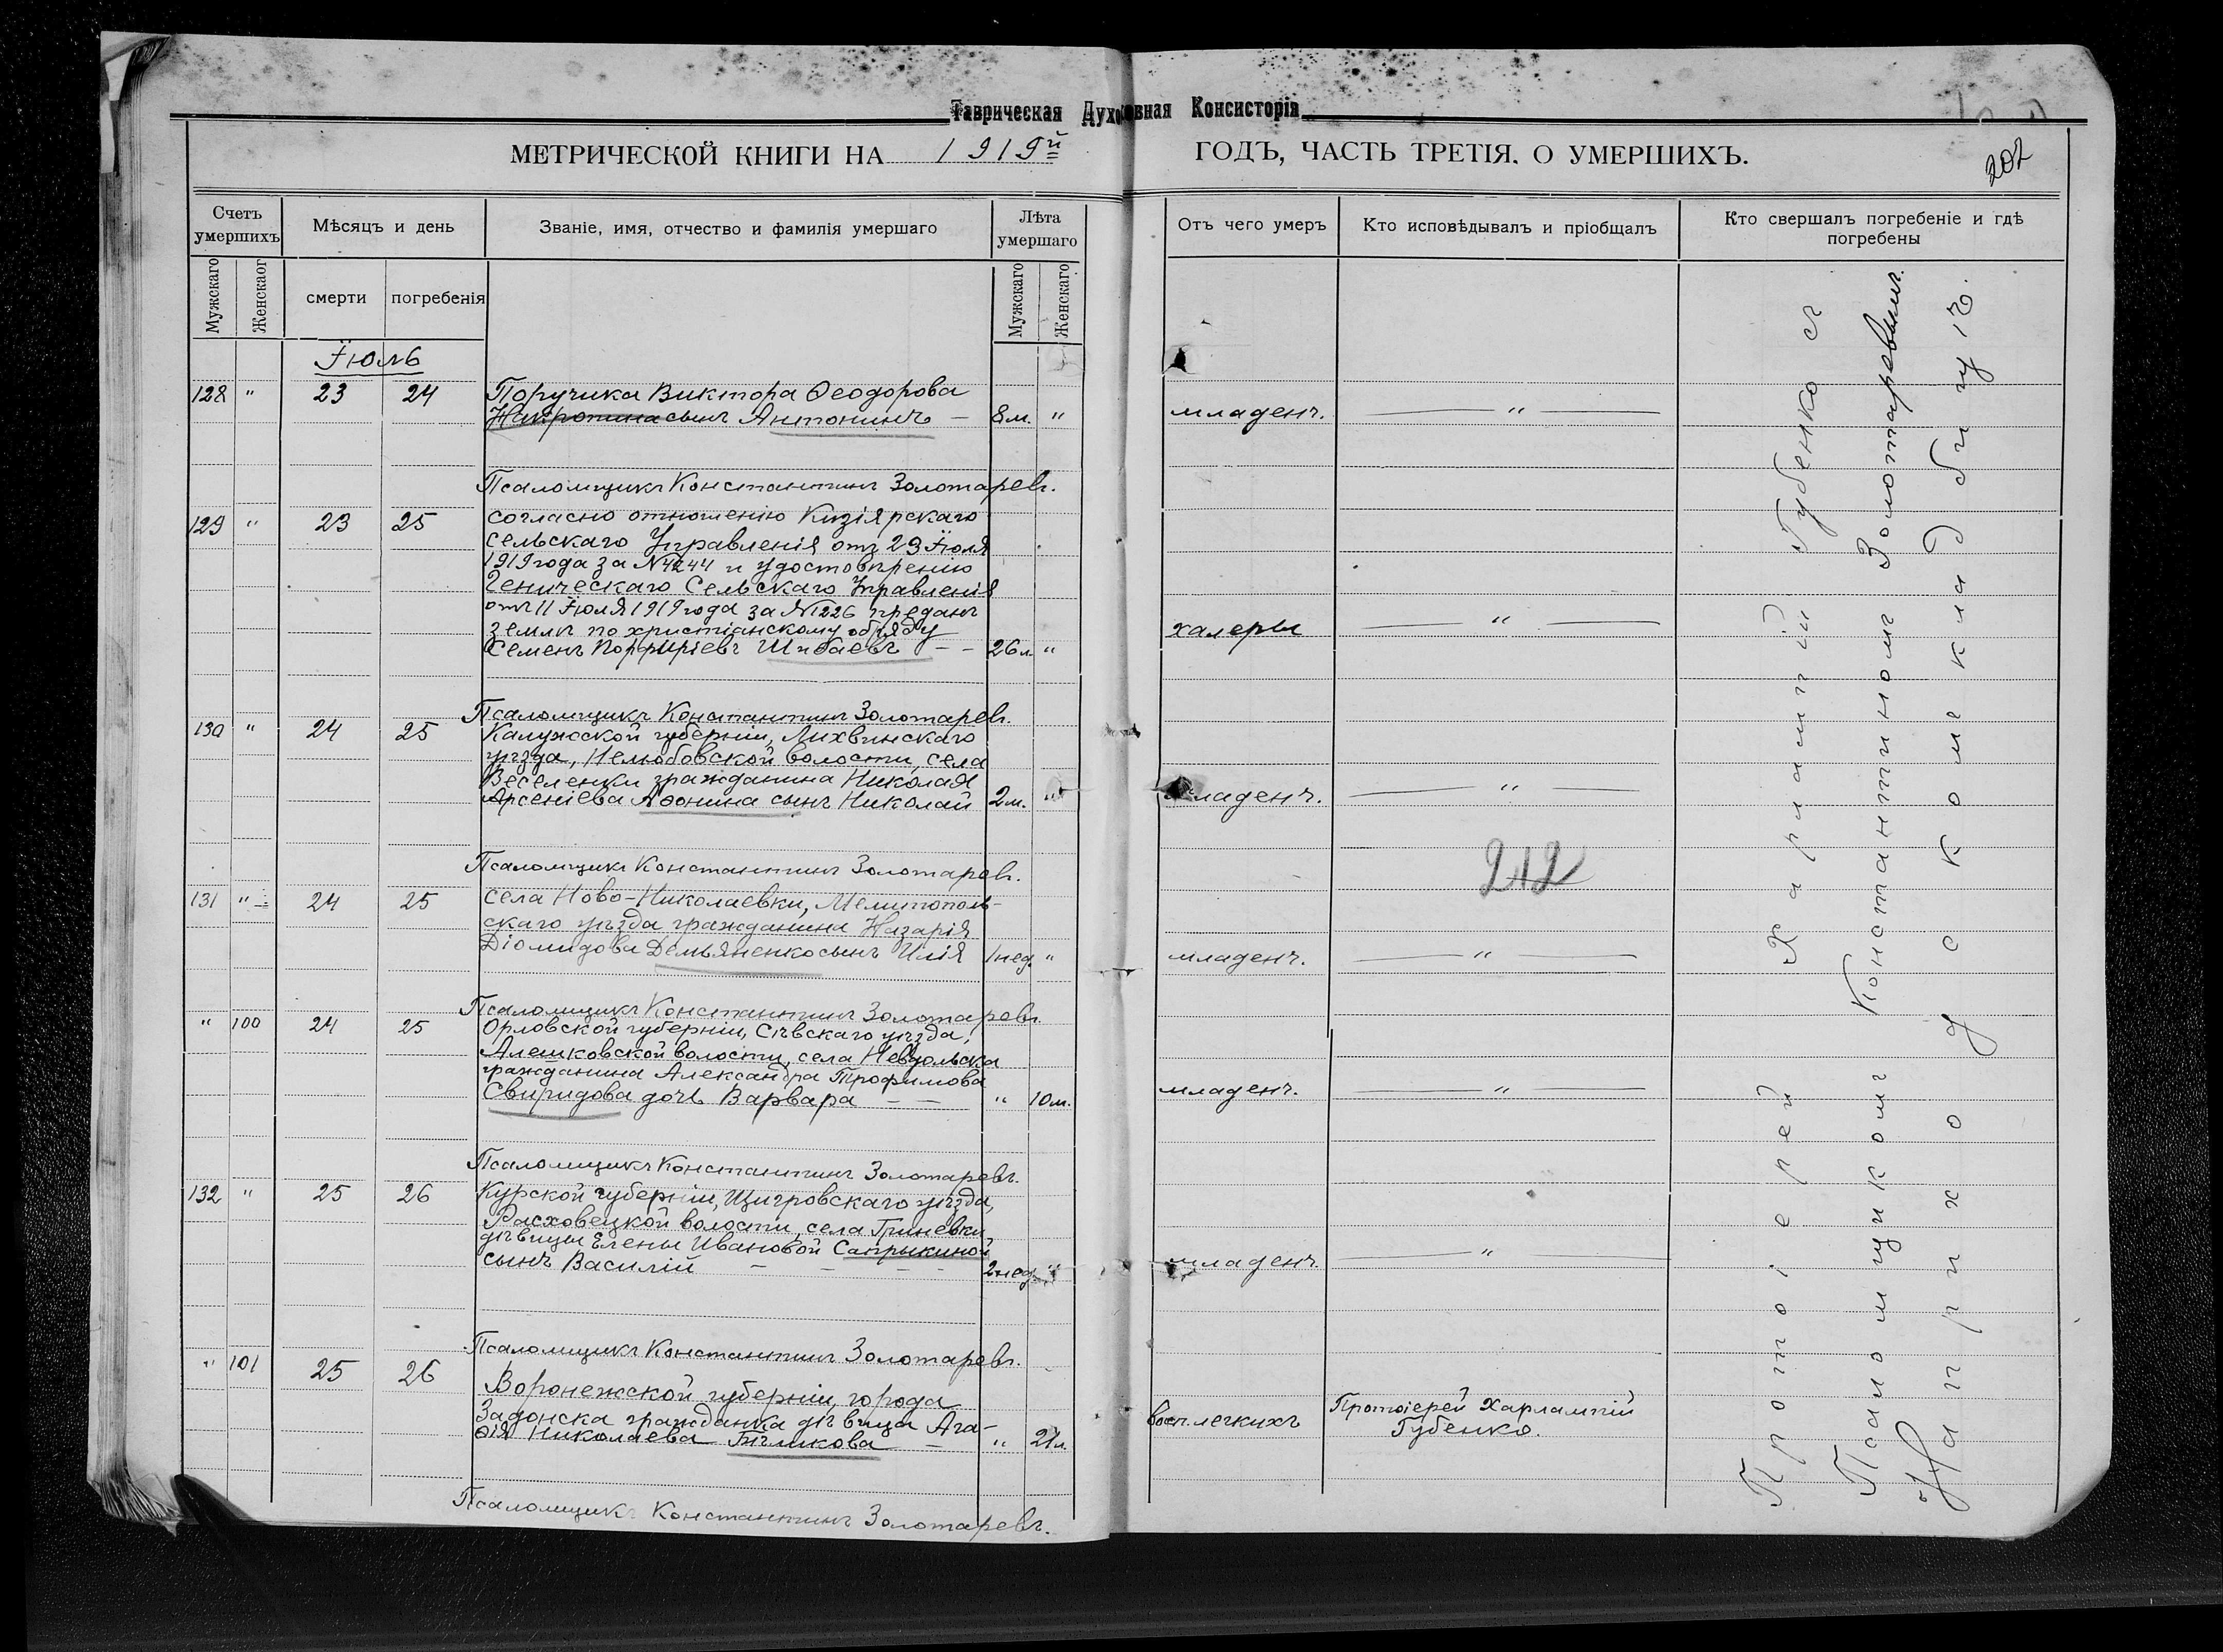 Таврическая Духовная Консисторія
МЕТРИЧЕСКОЙ КНИГИ НА 1919й ГОДЪ, ЧАСТЬ ТРЕТІЯ. О УМЕРШИХЪ.
202
Счетъ умершихъ
Мѣсяцъ и день
Званіе, имя, отчество и фамилія умершаго
Лѣта умершаго
Отъ чего умеръ
Кто исповѣдывалъ и пріобщалъ
Кто свершалъ погребеніе и гдѣ погребены
Мужскаго
Женскаог
смерти
погребенія
Мужскаго
Женскаго
Іюль
128 " 23 24 Поручика Виктора Ѳеодорова
сынъ Антонинъ — 8 м. " младенч. — " —
Псаломщикъ Константинъ Золотаревъ.
129 " 23 25 согласно отношенію Кизіярскаго
сельскаго Управленія отъ 23 Іюля
1919 года за № 4244 и удостовѣренію
Геническаго Сельскаго Управленія
отъ 11 Іюля 1919 года за № 1226 преданъ
землѣ по христіанскому обряду
Семенъ Порфиріевъ Шибаевъ — — 26 л. " халеры — " —
Псаломщикъ Константинъ Золотаревъ.
130 " 24 25 Калужской губерніи, Лихвинскаго
уѣзда, Нелюбовской волости, села
Веселенки гражданина Николая
Арсеніева Аѳонина сынъ Николай 2 м. " младенч. — " —
212
Псаломщикъ Константинъ Золотаревъ.
131 " 24 25 села Ново-Николаевки, Мелитополь-
скаго уѣзда гражданина Назарія
Діомидова Демьяненко сынъ Илія 1 нед. " младенч. — " —
Псаломщикъ Константинъ Золотаревъ.
" 100 24 25 Орловской губерніи, Сѣвскаго уѣзда,
Алешковской волости, села Невдольска
гражданина Александра Трофимова
Свиридова дочь Варвара — — " 10 м. младенч. — " —
Псаломщикъ Константинъ Золотаревъ.
132 " 25 26 Курской губерніи, Щигровскаго уѣзда,
Расховецкой волости, села Гриневки
дѣвицы Елены Ивановой Сапрыкиной
сынъ Василій — — — — 2 нед. " младенч. — " —
Псаломщикъ Константинъ Золотаревъ.
" 101 25 26 Воронежской губерніи, города
Задонска гражданка дѣвица Ага-
ѳія Николаева Бѣликова — " 21 л. восп. легкихъ Протоіерей Харлампій
Губенко.
Псаломщикъ Константинъ Золотаревъ.
Протоіерей Харлампій Губенко съ
Псаломщикомъ Константиномъ Золотаревымъ.
На приходскомъ кладбищѣ.